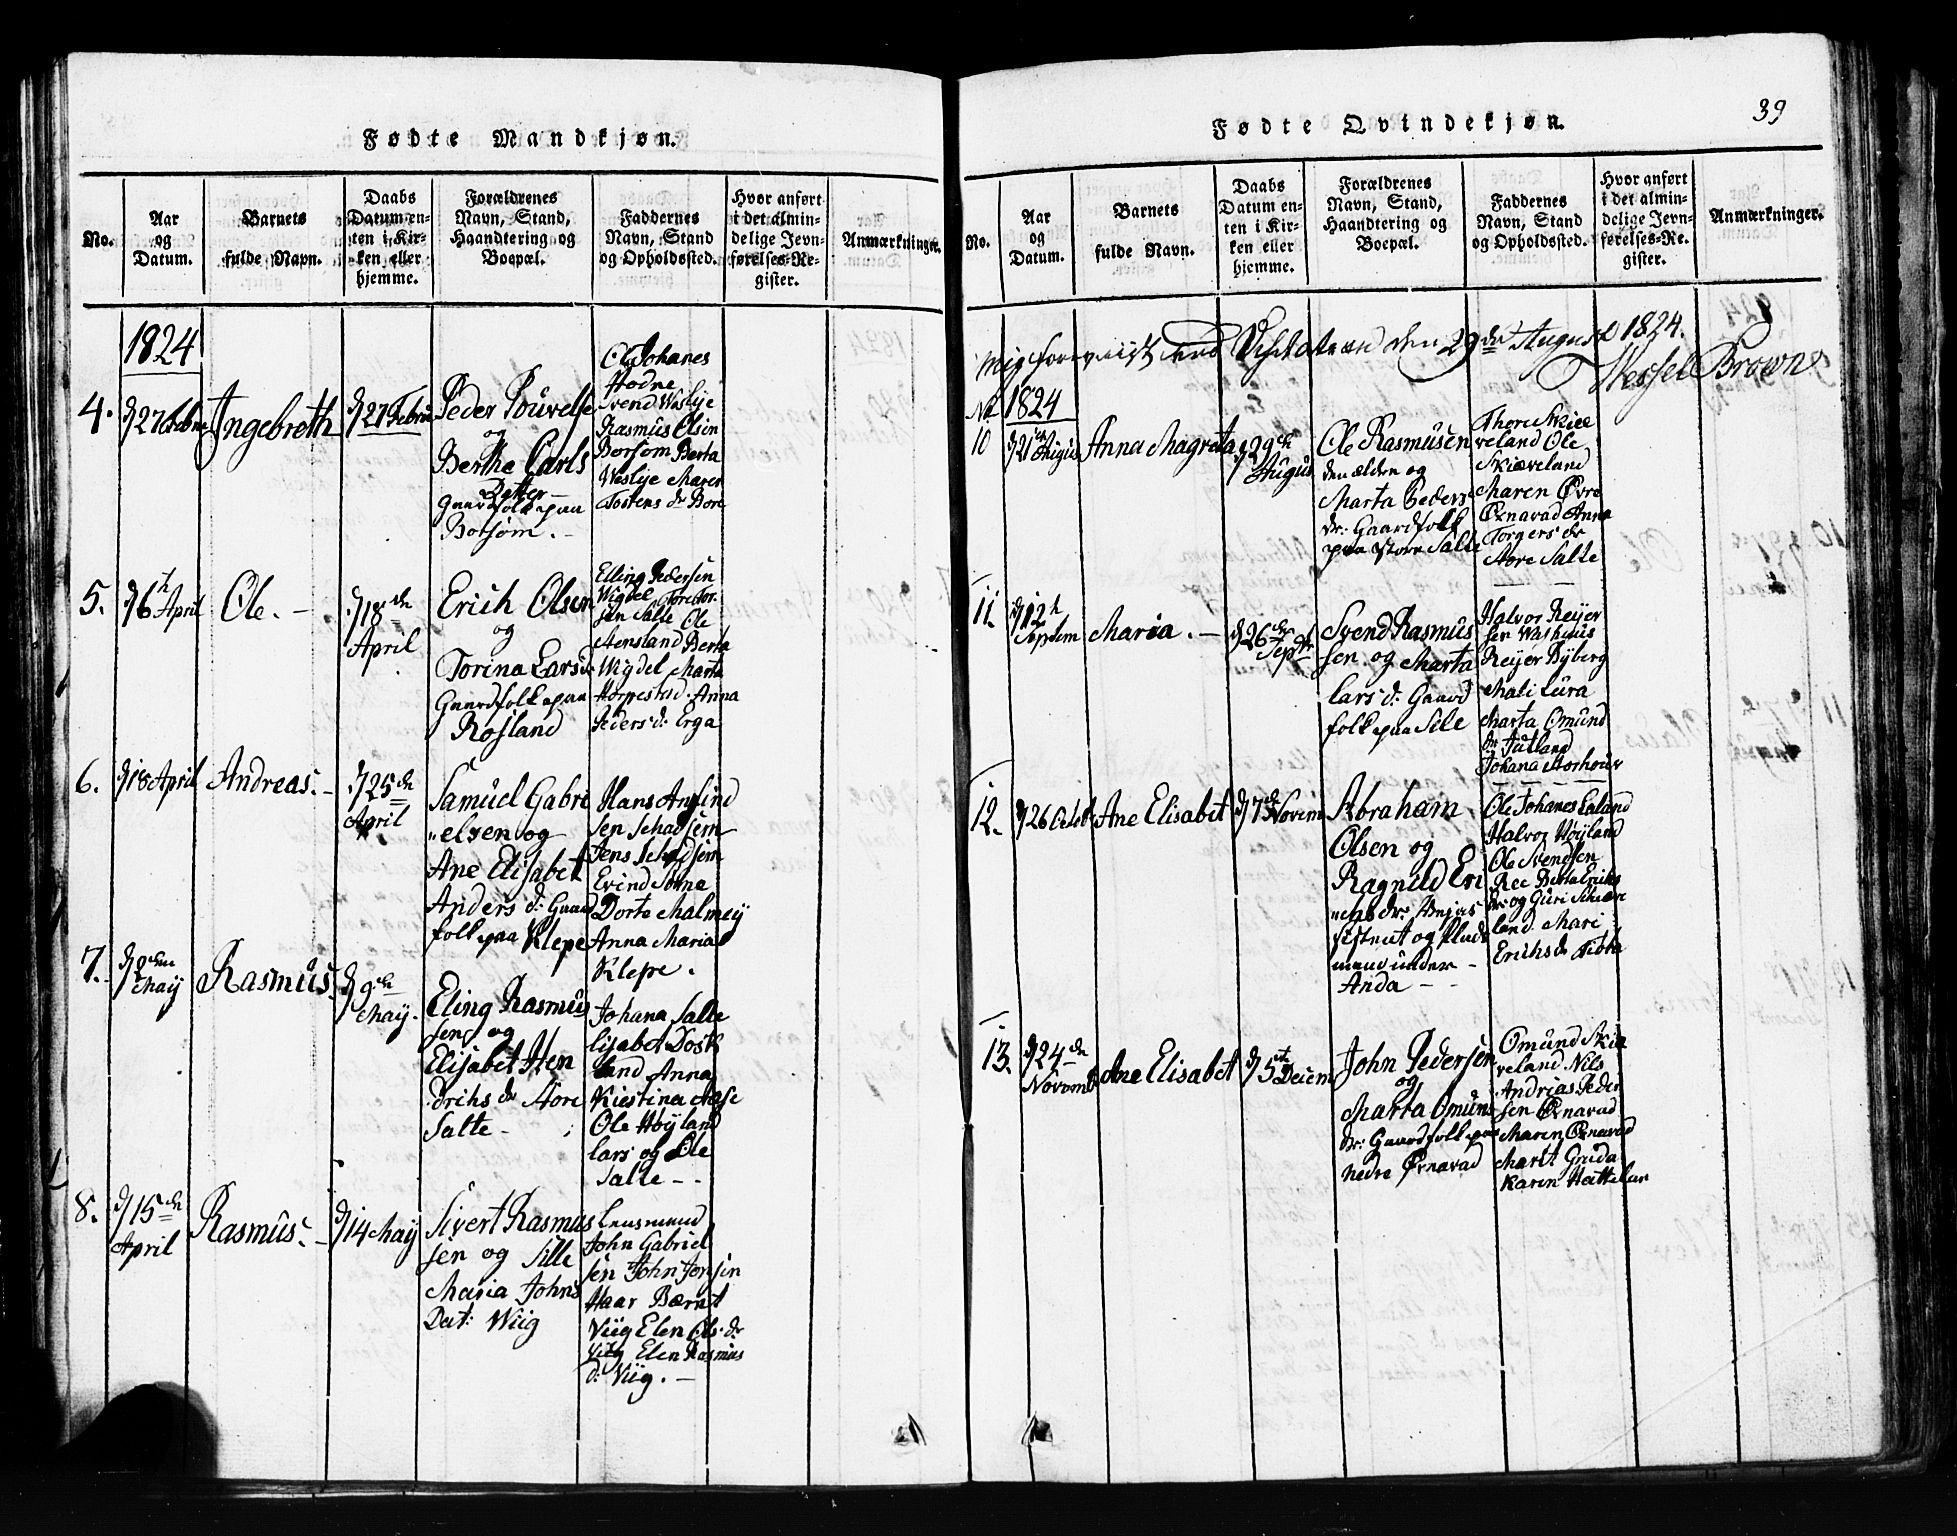 Fødte Mandkjøn.
No.
Aar
og
Datum.
Barnets
fulde Navn.
Daabs
Datum en-
ten i Kir-
ken eller
hjemme.
Forældrenes
Navn, Stand,
Haandtering og
Boepæl.
Faddernes
Navn, Stand
og Opholdssted.
Hvor anført
i det almin-
delige Jevn-
førelses-Re-
gister.
Anmærkninger.
1824
4.
d 27 Febru
Ingebreth
d 27 Febru
Peder Pouvelse
og
Berthe Carls
Datter
Gaardfolk paa
Borsøm.
Ole Johanes
Hodne
Svend Waslije
Rasmus Olsen
Borsom Berta
Waslije Maren
Tostens dr Bore
5.
d 6th April
Ole.
d 18de
April
Erich Olsen
og
Torina Larsd
Gaardfolk paa
Rosland
Elling Pedersen
Wigdel Tore Tor
sen Salte Ole
Stensland Berta
Wigdel Marta
Horpestad Anna
Peders d: Erga
6.
d 18 April
Andreas.
d 25de
April
Samuel Gabri
"elsen og
Ane Elisabet
Anders d: Gaard
folk paa Klepe
Hans Anfind
sen Schadsem
Jens Schadsem
Evind Sønne
Dorte Malmey
Anna Maria
Klepe.
7.
d 8den
May
Rasmus
d 9de
May.
Eling Rasmus
sen og
Elisabet Hen
Drichs dr Store
Salte
Johana Salte
lisabet Dosk
land Anna
Kiestina Aase
Ole Høyland
lars og Ole
Salte
8.
d 15de
April
Rasmus.
d 14 May
Sivert Rasmus
sen og Sille
Maria Johns
Dat: Wiig
Lensmand
John Gabriel
sen John Jonsen
Haar Bærnt
Viig Elen Ols. dr
Viig Elen Rasmus
d: Viig.
39
Fødte Qvindekjøn.
No.
Aar
og
Datum.
Barnets
fulde Navn.
Daabs
Datum en-
ten i Kir-
ken eller
hjemme.
Forældrenes
Navn, Stand,
Haandtering og
Boepæl.
Faddernes
Navn, Stand
og Opholdssted.
Hvor anført
i det almin-
delige Jevn-
førelses-Re-
gister.
Anmærkninger.
Mig foreviist ved Visitatsen den 29de August 1824.
Wessel Brown
No
1824
10
d 21de
Augus
Anna Magreta
d 29de
Augus
Ole Rasmusen
den ælden og
Marta Peders
dr: Gaardfolk
paa Store Salte
Thore Skiee
veland Ole
Skiæveland
Maren Øvre
Ørnavad Anna
Torgers dr
Store Salte
11.
d 12th
Septem
Maria.
d 26de
Septbr
Svend Rasmus
sen og Marta
lars d: Gaard
folk paa Sele
Halvor Reijer
sen Washuus
Reijer Byberg
Mali Lura
Marta Omund
dr Jutland
Johana Storhour
12.
d 26 Octob
Ane Elisabet
d 7de Novim
Abraham
Olsen og
Ragnild Eri
"chs dr:
under
Anda
Ole Johanes Laland
Halvor Høyland
Ole Svendsen
Ree Berta Erichs
dr: og Guri Schiæve
land. Mari
Erichs dr Tibta
13.
d 24de
Novomb
Ane Elisabet
d 5te Decem
John Pedersen
og
Marta Omuns
dr: Gaardfolk paa
Nedre Ørnavad
Omund Skiæ
veland Nils
Andrias Peder
sen Ørnavad
Maren Ørnavad
Marit Gruda
Karen Hattelan